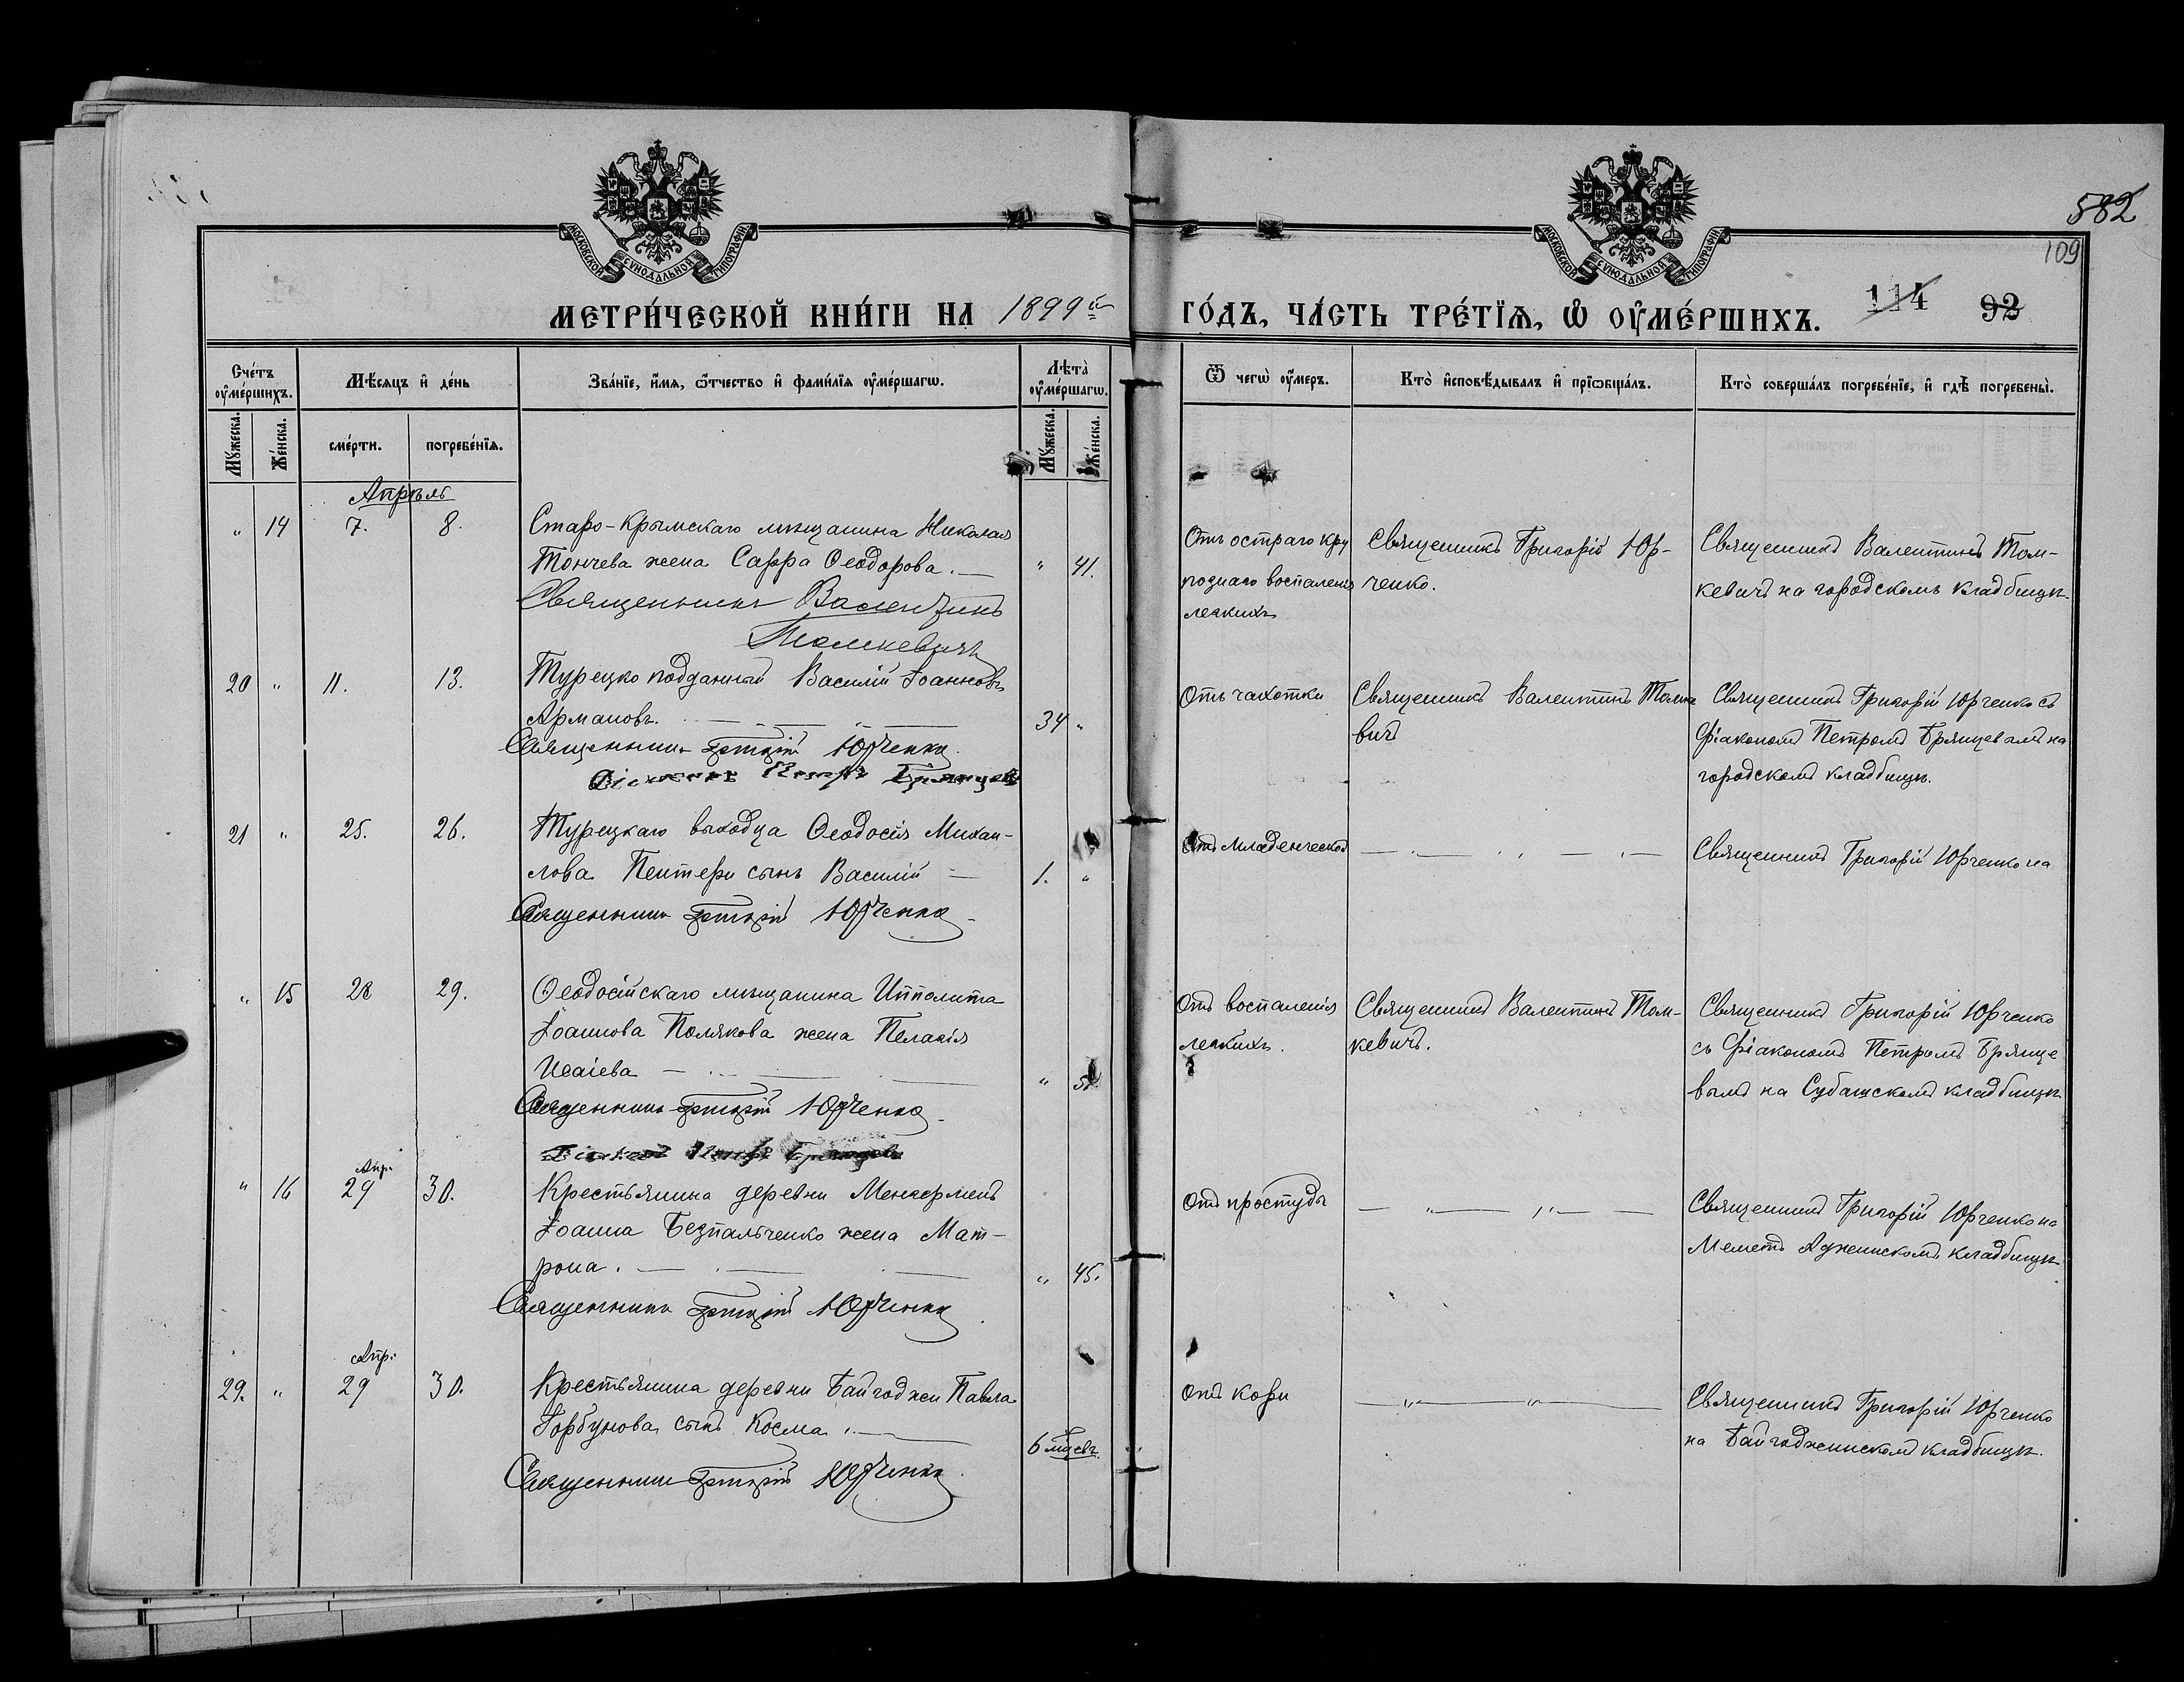 МОСКОВСКОЙ СѴНОДАЛЬНОЙ ТИПОГРАФІИ
МОСКОВСКОЙ СѴНОДАЛЬНОЙ ТИПОГРАФІИ
582
109
МЕТРИ́ЧЕСКОЙ КНИ́ГИ НА 1899й ГО́ДЪ, ЧА́СТЬ ТРЕ́ТЇѦ, Ѡ҆ ОУ҆МЕ́РШИХЪ.
114 92
Сче́тъ оу҆ме́ршихъ.
Мѣ́сѧцъ и҆ де́нь
Зва́нїе, и҆́мѧ, ѻ҆́тчество и҆ фами́лїѧ оу҆ме́ршагѡ.
Лѣ́та оу҆ме́ршагѡ.
Ѿ чегѡ̀ оу҆́меръ.
Кто̀ и҆сповѣ́дывалъ и҆ прїѡбща́лъ.
Кто̀ соверша́лъ погребе́нїе, и҆ гдѣ̀ погребены̀.
Мꙋ́жеска.
Же́нска.
сме́рти.
погребе́нїѧ.
Мꙋ́жеска.
Же́нска.
Апрѣль
" 14 7. 8. Старо-Крымскаго мѣщанина Николая
Тончева жена Сарра Ѳеодорова. " 41.
Священникъ Валентинъ
Томкевичъ
Отъ остраго кру
познаго воспаленія
легкихъ
Священникъ Григорій Юр-
ченко.
Священникъ Валентинъ Том-
кевичъ на городскомъ кладбищѣ.
20 " 11. 13. Турецко подданный Василій Іоанновъ
Армаковъ. 34 "
Священникъ Григорій Юрченко
Діаконъ Петръ Брянцевъ
Отъ чахотки
Священникъ Валентинъ Томке
вичъ
Священникъ Григорій Юрченко съ
Діакономъ Петромъ Брянцевымъ на
городскомъ кладбищѣ.
21 " 25. 26. Турецкаго выходца Ѳеодосія Михаи-
лова Пентери сынъ Василій 1. "
Священникъ Григорій Юрченко
Отъ младенческой
Священникъ Григорій Юрченко на
" 15 28 29. Ѳеодосійскаго мѣщанина Ипполита
Іоаннова Полякова жена Пелагія
Исаіева "
Священникъ Григорій Юрченко
Діаконъ Петръ Брянцевъ
Отъ воспаленія
легкихъ.
Священникъ Валентинъ Том-
кевичъ.
Священникъ Григорій Юрченко
съ Діакономъ Петромъ Брянце
вымъ на Субашскомъ кладбищѣ
Апр.
" 16 29 30. Крестьянина деревни Менгерменъ
Іоанна Безпальченко жена Мат-
рона. " 45.
Священникъ Григорій Юрченко
Отъ простуды
Священникъ Григорій Юрченко на
Меметъ Аджинскомъ кладбищѣ
Апр.
29. " 29 30. Крестьянина деревни Байгоджи Павла
Горбунова сынъ Косма. 6 мѣсяцевъ "
Священникъ Григорій Юрченко
Отъ кори
Священникъ Григорій Юрченко
на Байгоджинскомъ кладбищѣ.